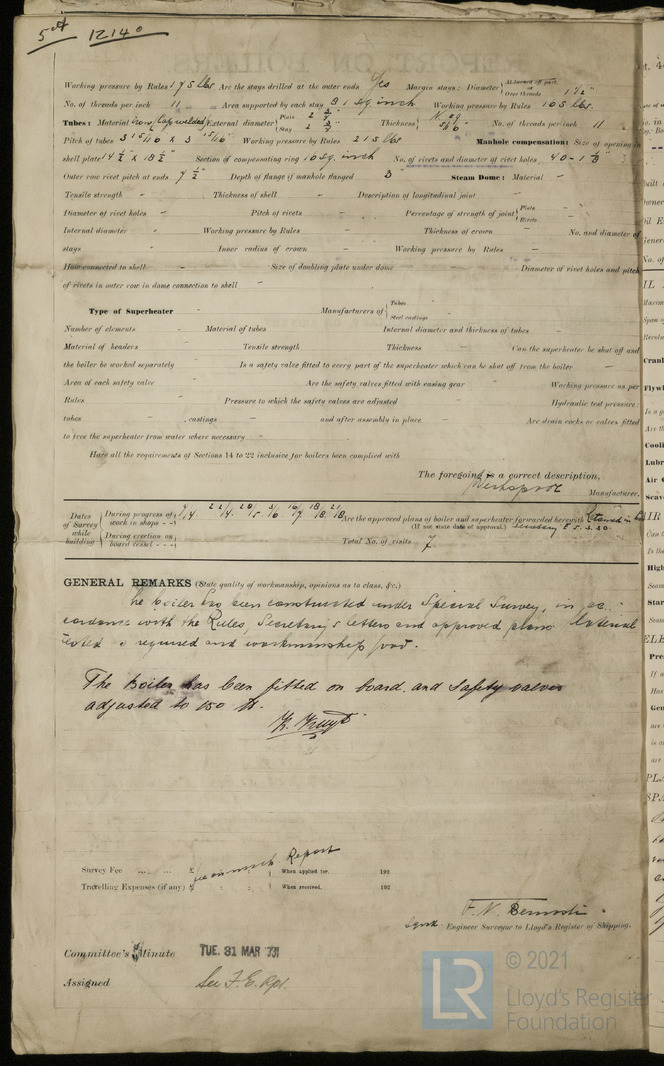 5 12140
Working pressure by Rules 175 lbs Are the stays drilled at the outer ends Yes Margin stays: Diameter { At turned off part, or Over threads 1 1/2"
No. of threads per inch 11 Area supported by each stay 81 sq inch Working pressure by Rules 165 lbs.
Tubes: Material Iron (Lap welded) External diameter { Plain 2 3/4" Stay 2 3/4" Thickness { 5/16" No. of threads per inch 11
Pitch of tubes 3 15/16 x 3 15/16" Working pressure by Rules 215 lbs Manhole compensation: Size of opening in
shell plate 14 1/2 x 18 1/2" Section of compensating ring 10 sq. inch No. of rivets and diameter of rivet holes 40 - 1
Outer row rivet pitch at ends 7 1/2" Depth of flange if manhole flanged 3" Steam Dome: Material -
Tensile strength - Thickness of shell - Description of longitudinal joint -
Diameter of rivet holes - Pitch of rivets - Percentage of strength of joint { Plates Rivets -
Internal diameter - Working pressure by Rules - Thickness of crown - No. and diameter of
stays - Inner radius of crown - Working pressure by Rules -
How connected to shell - Size of doubling plate under dome - Diameter of rivet holes and pitch
of rivets in outer row in dome connection to shell -
Type of Superheater - Manufacturers of { Tubes Steel castings -
Number of elements - Material of tubes - Internal diameter and thickness of tubes -
Material of headers - Tensile strength - Thickness - Can the superheater be shut off and
the boiler be worked separately - Is a safety valve fitted to every part of the superheater which can be shut off from the boiler -
Area of each safety valve - Are the safety valves fitted with easing gear - Working pressure as per
Rules - Pressure to which the safety valves are adjusted - Hydraulic test pressure:
tubes - , castings - and after assembly in place - Are drain cocks or valves fitted
to free the superheater from water where necessary -
Have all the requirements of Sections 14 to 22 inclusive for boilers been complied with
The foregoing is a correct description,
Manufacturer.
Dates of Survey while building { During progress of work in shops - - Are the approved plans of boiler and superheater forwarded herewith
(If not state date of approval.) Secretary E 5.3.30
During erection on board vessel - - - Total No. of visits 7
GENERAL REMARKS (State quality of workmanship, opinions as to class, &c.)
The boiler has been constructed under Special Survey, in ac-
cordance with the Rules, Secretary's letters and approved plans Material
tested as required and workmanship good.
The Boiler has been fitted on board, and Safety valves
adjusted to 150 lb.
Survey Fee ... ... £ fee on mach. Report When applied for, 192
Travelling Expenses (if any) £ When received, 192
Engineer Surveyor to Lloyd's Register of Shipping.
Committee's Minute TUE. 31 MAR 1931
Assigned See F.E. Rpt.
LR © 2021
Lloyd's Register
Foundation